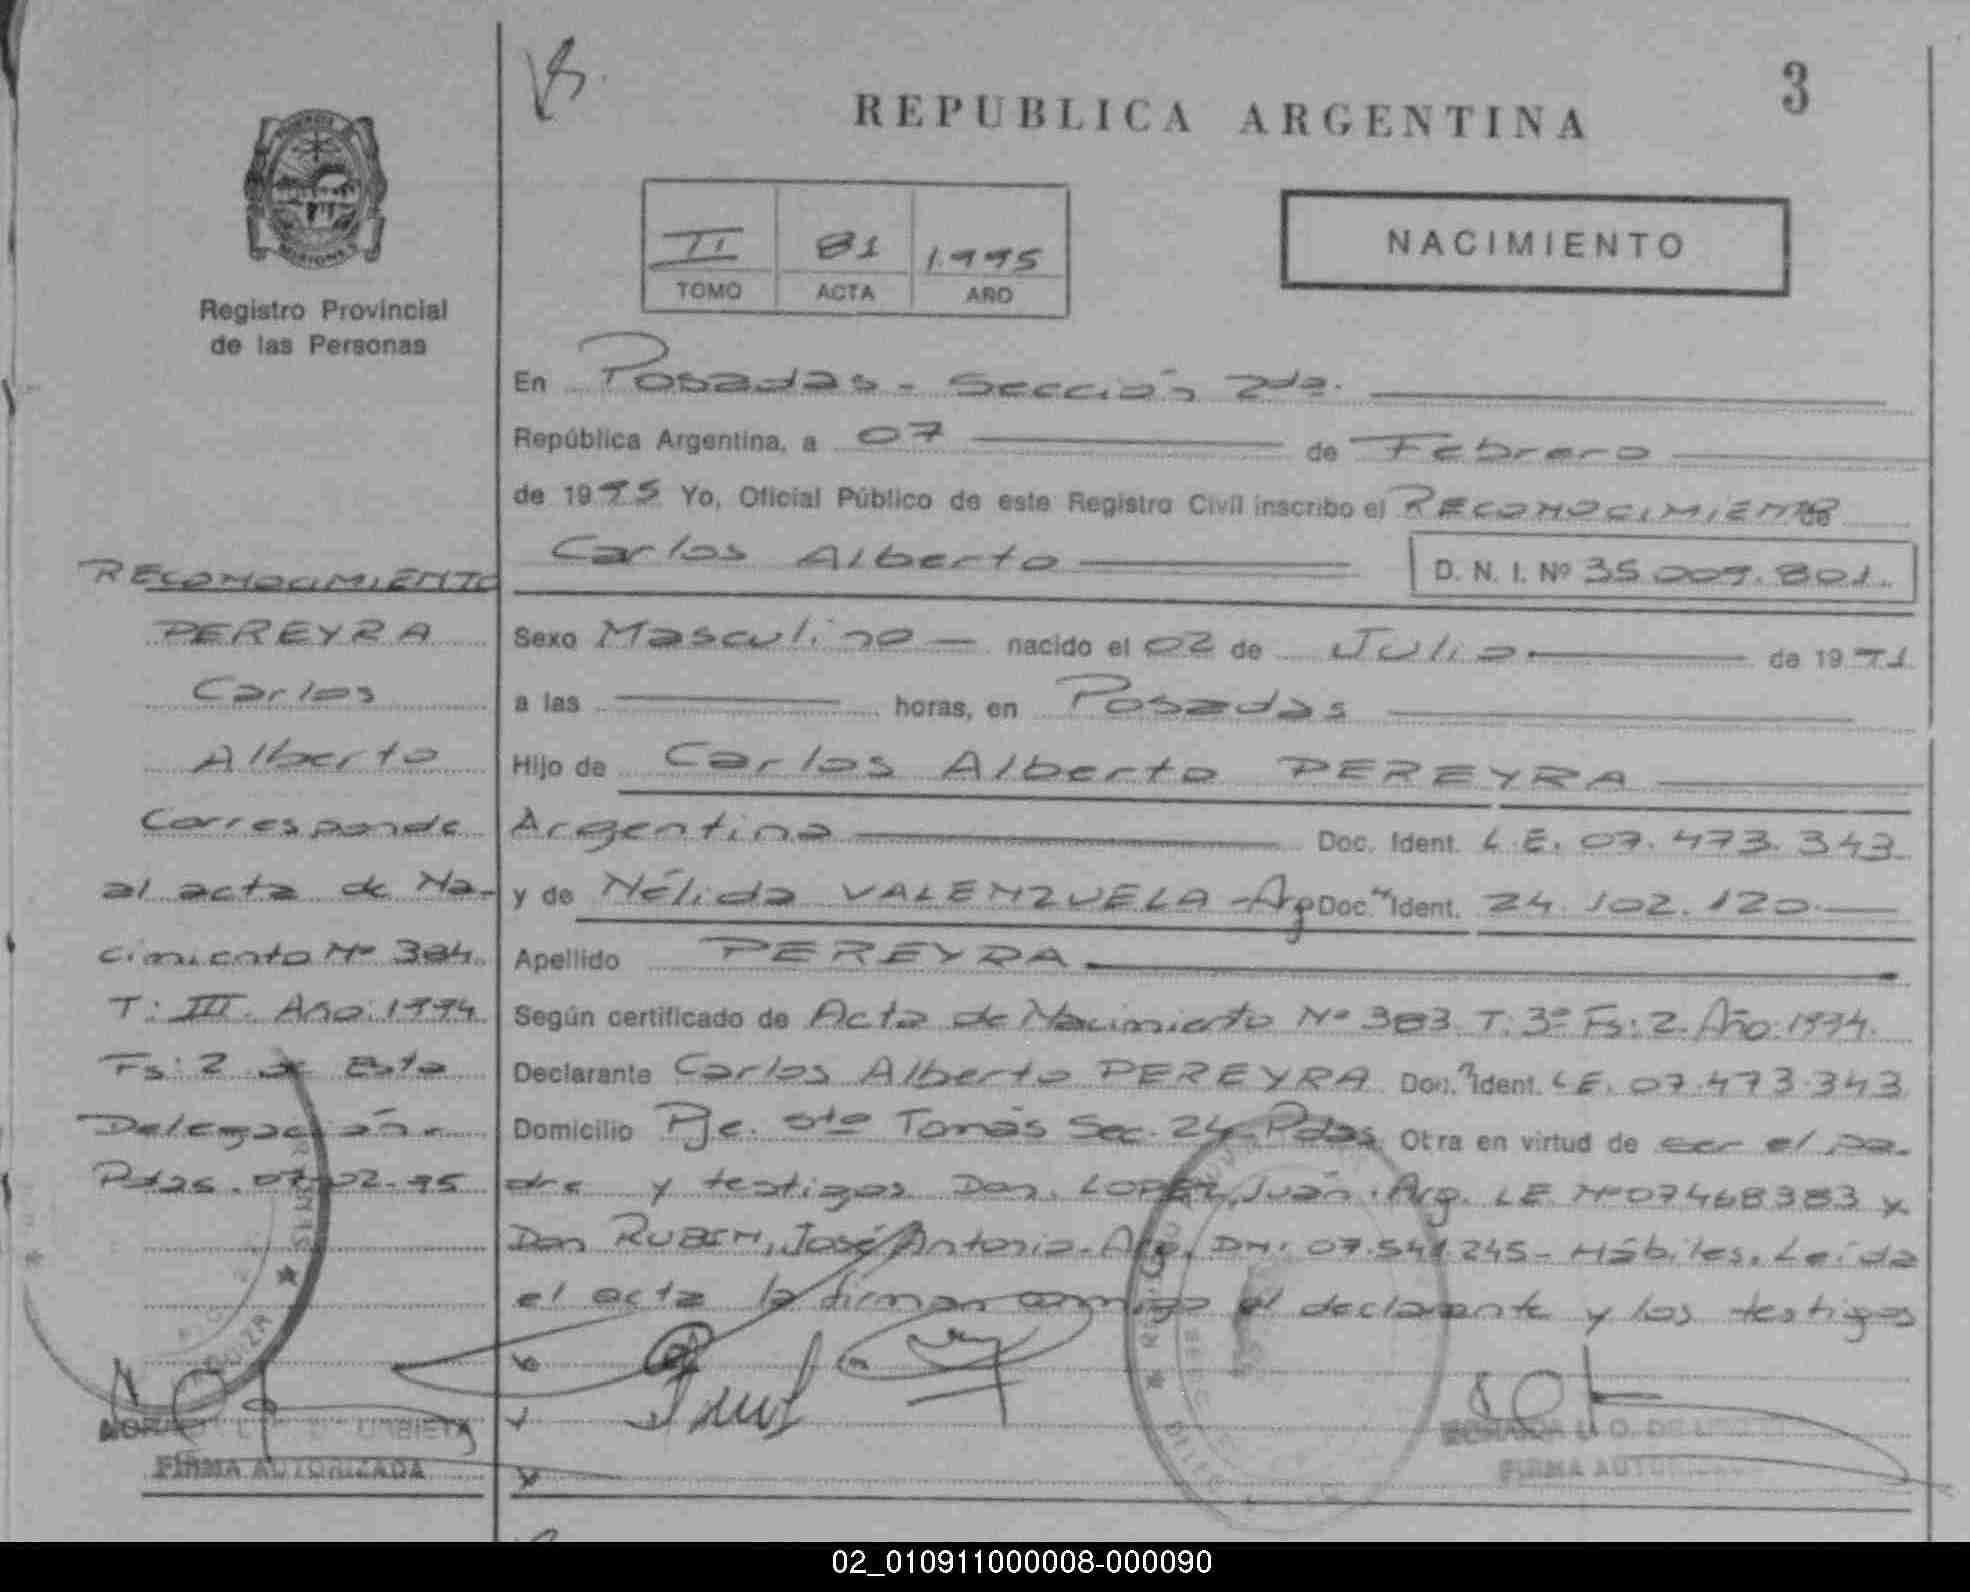 3
REPUBLICA ARGENTINA
NACIMIENTO
II 81 1.995
TOMO ACTA AÑO
Registro Provincial
de las Personas
En Posadas - Sección 2da.
República Argentina, a 07 de Febrero
de 1995 Yo, Oficial Público de este Registro Civil inscribo el RECONOCIMIENTO de
Carlos Alberto D. N. I. Nº 35.009.801.
Sexo Masculino nacido el 02 de Julio de 1991
a las horas, en Posadas
Hijo de Carlos Alberto PEREYRA
Argentina Doc. Ident. L.E. 07.473.343.
y de Nélida VALENZUELA - Arg Doc. Ident. 24.102.120.
Apellido PEREYRA
Según certificado de Acta de Nacimiento Nº 383 T. 3º Fs: 2. Año: 1994.
Declarante Carlos Alberto PEREYRA Doc. Ident. LE. 07.473.343
Domicilio Pje. Sto Tomás Sec. 24 - Pdas. Otra en virtud de ser el pa-
dre y testigos Don. LOPEZ, Juán. Arg. LE Nº 07468383 y
Don RUBEN, José Antonio. Arg. DNI 07.541.245 - Hábiles. Leída
el acta la firman conmigo el declarante y los testigos
RECONOCIMIENTO
PEREYRA
Carlos
Alberto
Corresponde
al acta de Na-
cimiento Nº 384.
T: III. Año: 1994
Fs: 2 de Esta
Delegación.
Pdas. 07-02-95
URBIETA
FIRMA AUTORIZADA
FIRMA AUTORIZADA
02_010911000008-000090